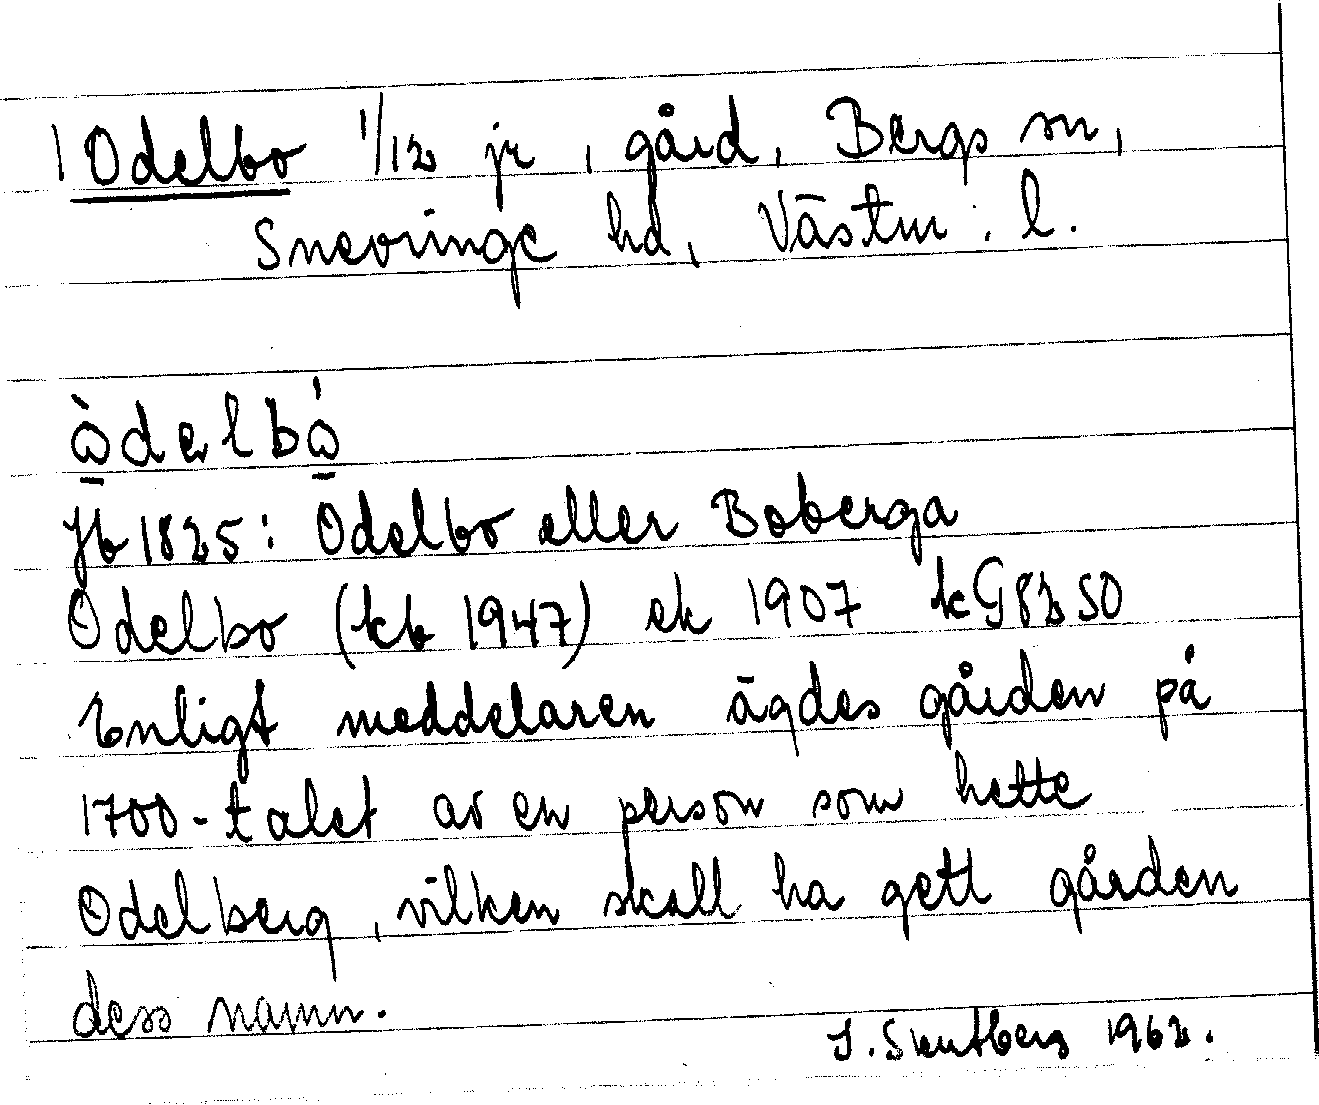 1 Odelbo 1/12 jr, gård, Bergs sn,
Snevringe hd, Västm. l.
ὼdelbώ
Jb 1825: Odelbo eller Boberga
Odelbo (kb 1947) ek 1907 kG 82 SO
Enligt meddelaren ägdes gården på
1700-talet av en person som hette
Odelberg, vilken skall ha gett gården
dess namn.
1962.